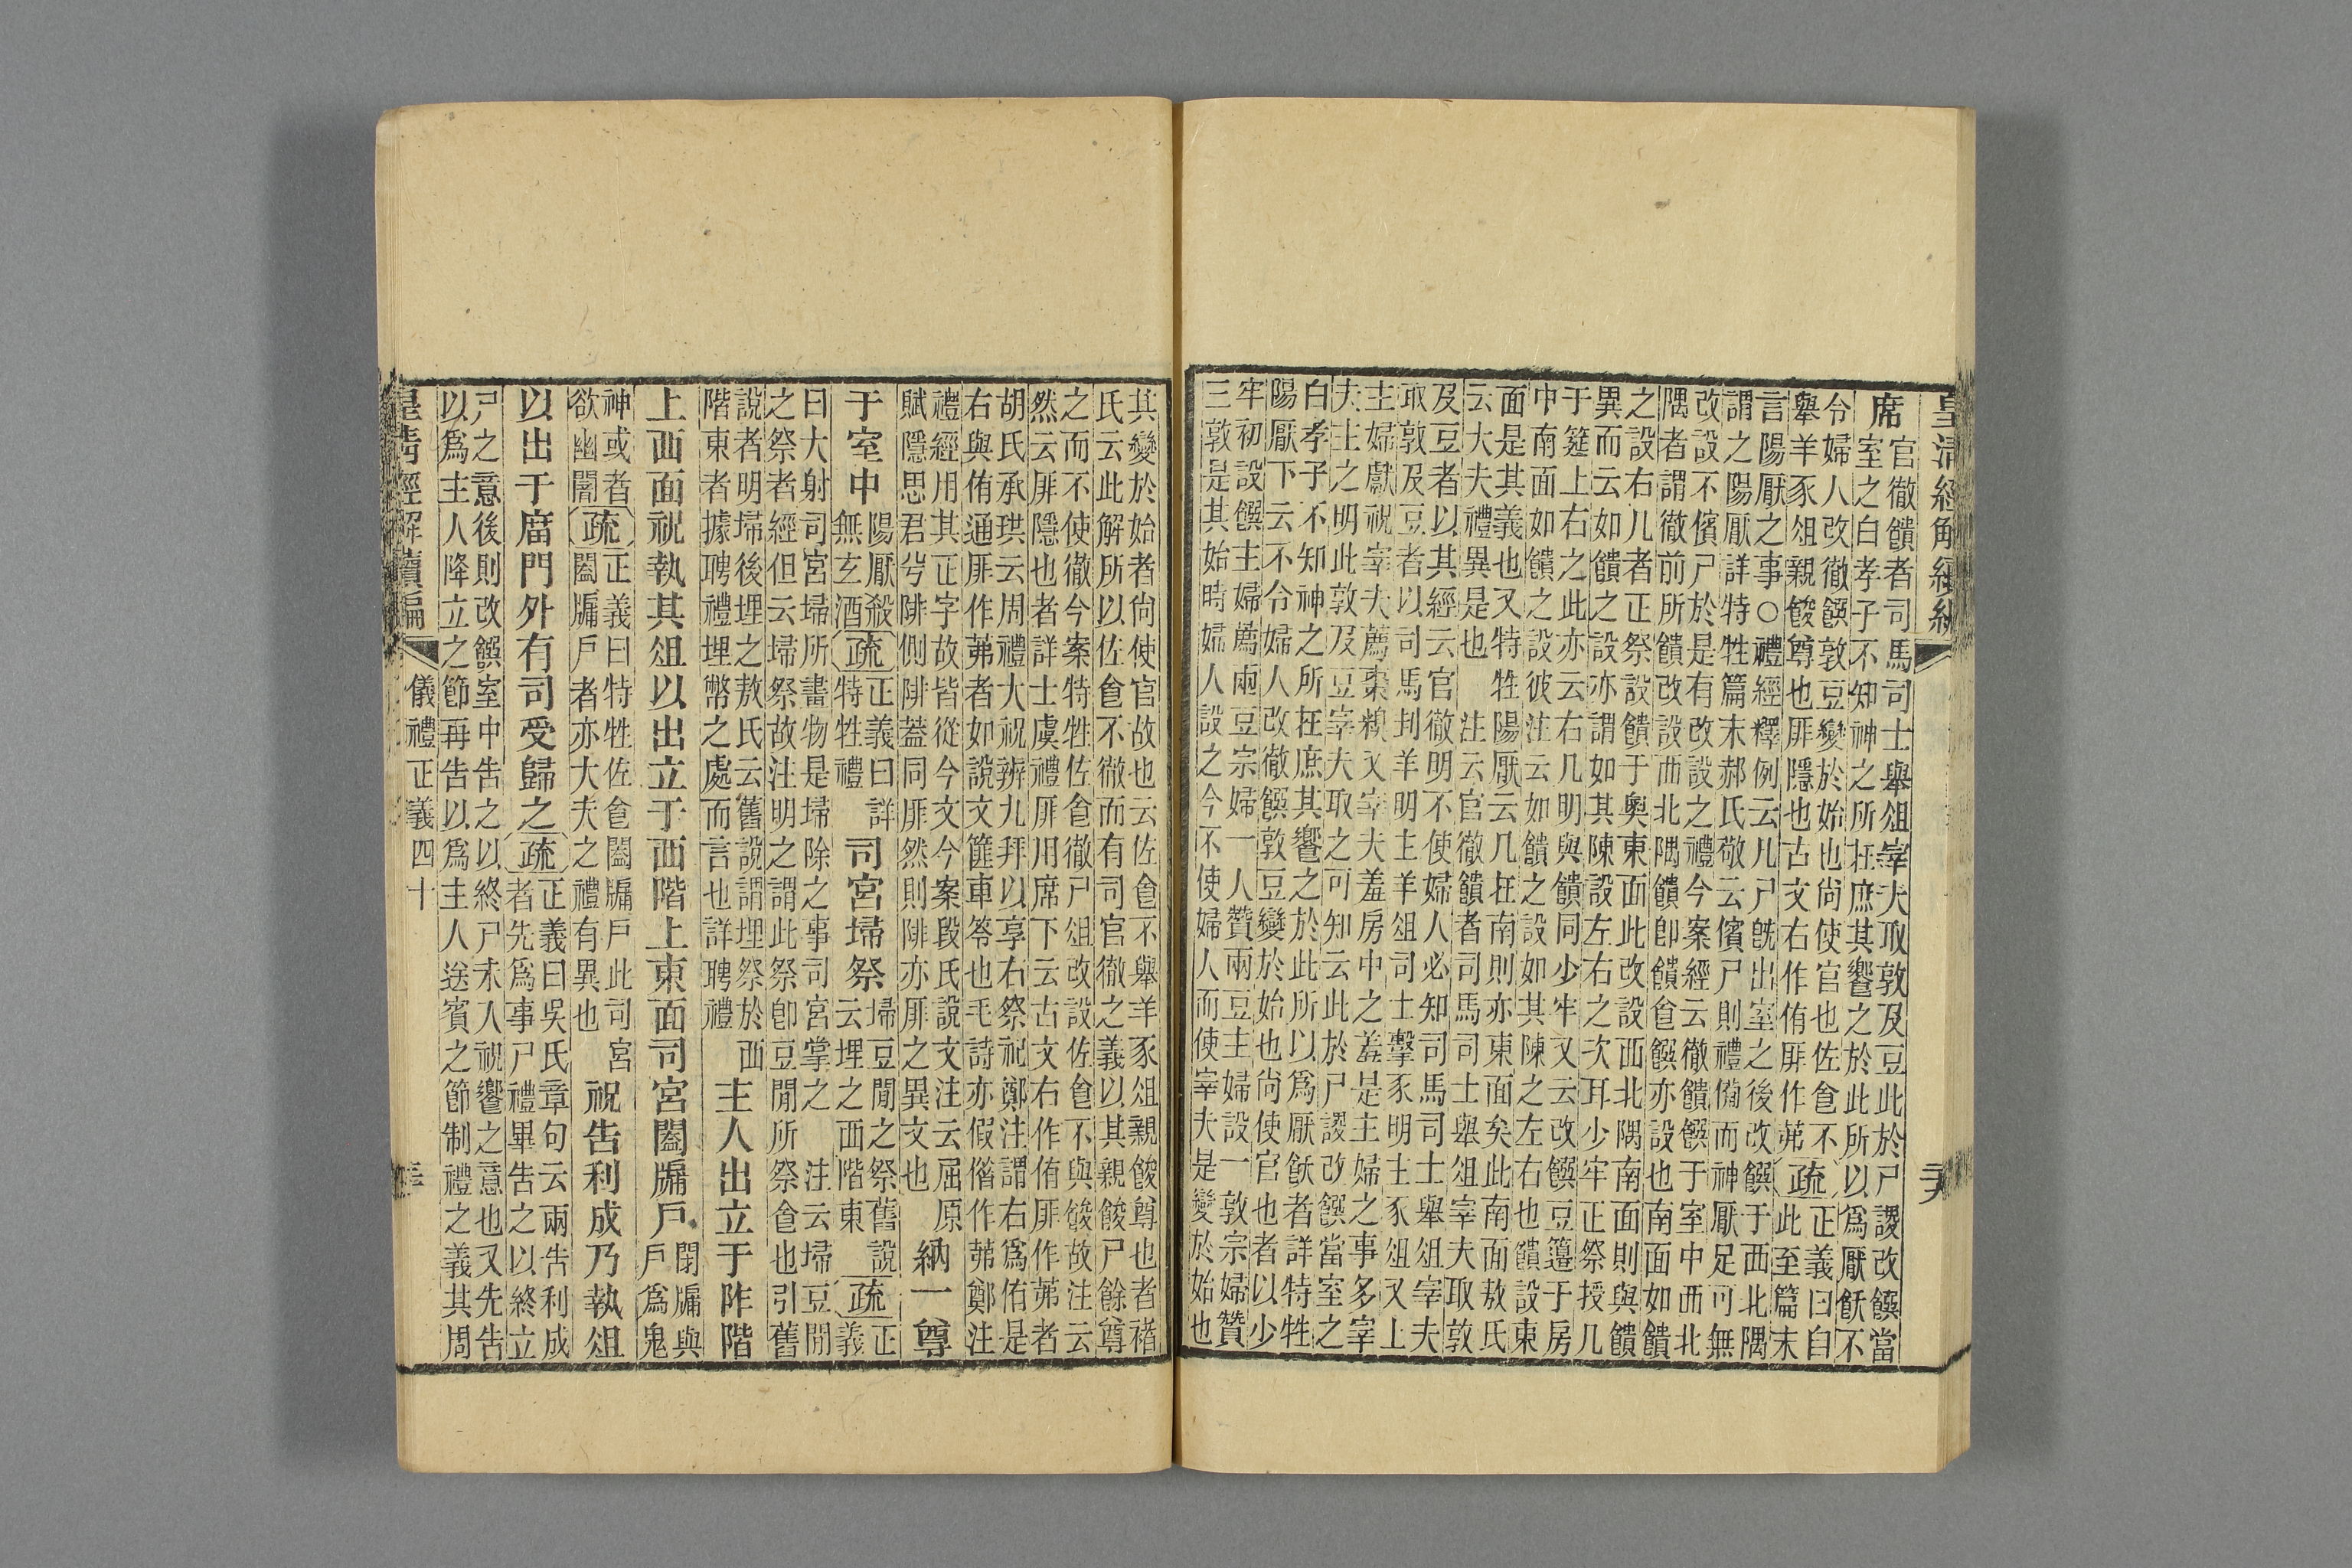 皇清經解續編
三六
席
官徹饋者司馬司士舉俎宰夫取敦及豆此於尸謖改饌當
室之白孝子不知神之所在庶其饗之於此所以爲厭飫不
令婦人改徹饌敦豆變於始也尙使官也佐食不
舉羊豕俎親餕尊也厞隱也古文右作侑厞作茀
疏
正義曰自
此至篇末
言陽厭之事○禮經釋例云凡尸旣出室之後改饌于西北隅
謂之陽厭詳特牲篇末郝氏敬云儐尸則禮備而神厭足可無
改設不儐尸於是有改設之禮今案經云徹饋饌于室中西北
隅者謂徹前所饋改設西北隅饋卽饋食饌亦設也南面如饋
之設右几者正祭設饋于奧東面此改設西北隅南面則與饋
異而云如饋之設亦謂如其陳設左右之次耳少牢正祭授几
于筵上右之此亦云右几明與饋同少牢又云改饌豆籩于房
中南面如饋之設彼注云如饋之設如其陳之左右也饋設東
面是其義也又特牲陽厭云几在南則亦東面矣此南面敖氏
云大夫禮異是也　注云官徹饋者司馬司士舉俎宰夫取敦
及豆者以其經云官徹明不使婦人必知司馬司士舉俎宰夫
取敦及豆者以司馬刲羊明主羊俎司士擊豕明主豕俎又上
主婦獻祝宰夫薦棗糗又宰夫羞房中之羞是主婦之事多宰
夫主之明此敦及豆宰夫取之可知云此於尸謖改饌當室之
白孝子不知神之所在庶其饗之於此所以爲厭飫者詳特牲
陽厭下云不令婦人改徹饌敦豆變於始也尙使官也者以少
牢初設饌主婦薦兩豆宗婦一人贊兩豆主婦設一敦宗婦贊
三敦是其始時婦人設之今不使婦人而使宰夫是變於始也
其變於始者尙使官故也云佐食不舉羊豕俎親餕尊也者褚
氏云此解所以佐食不徹而有司官徹之義以其親餕尸餘尊
之而不使徹今案特牲佐食徹尸俎改設佐食不與餕故注云
然云厞隱也者詳士虞禮厞用席下云古文右作侑厞作茀者
胡氏承珙云周禮大祝辨九拜以享右祭祀鄭注謂右爲侑是
右與侑通厞作茀者如說文䉬車笭也毛詩亦假借作茀鄭注
禮經用其正字故皆從今文今案段氏說文注云屈原
賦隱思君兮陫側陫蓋同厞然則陫亦厞之異文也
納一尊
于室中
陽厭殺
無玄酒
疏
正義曰詳
特牲禮
司宮埽祭
埽豆閒之祭舊說
云埋之西階東
疏
正
義
曰大射司宮埽所畫物是埽除之事司宮掌之　注云埽豆閒
之祭者經但云埽祭故注明之謂此祭卽豆閒所祭食也引舊
說者明埽後埋之敖氏云舊說謂埋祭於西
階東者據聘禮埋幣之處而言也詳聘禮
主人出立于阼階
上西面祝執其俎以出立于西階上東面司宮闔牖戶
閉牖與
戶爲鬼
神或者
欲幽闇
疏
正義曰特牲佐食闔牖戶此司宮
闔牖戶者亦大夫之禮有異也
祝告利成乃執俎
以出于廟門外有司受歸之
疏
正義曰吳氏章句云兩告利成
者先爲事尸禮畢告之以終立
尸之意後則改饌室中告之以終尸未入祝饗之意也又先告
以爲主人降立之節再告以爲主人送賓之節制禮之義其周
皇清經解續編
儀禮正義四十